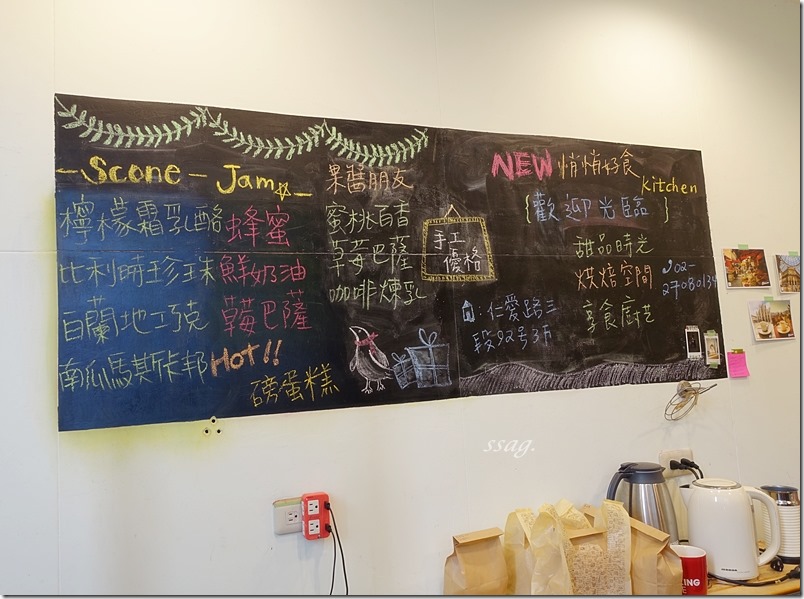 Scone - Jam
檸檬霜乳酪
蜂蜜
比利時珍珠
鮮奶油
白蘭地工克
草莓巴薩
南瓜馬斯卡邦
HOT!!
磅蛋糕
果醬朋友
蜜桃百香
草莓巴薩
咖啡煉乳
手工
優格
NEW 悄悄好食
Kitchen
{歡迎光臨}
甜品時光
烘焙空間
享食廚芸
02-
27080134
:仁愛路三
段92号3F
ssag.